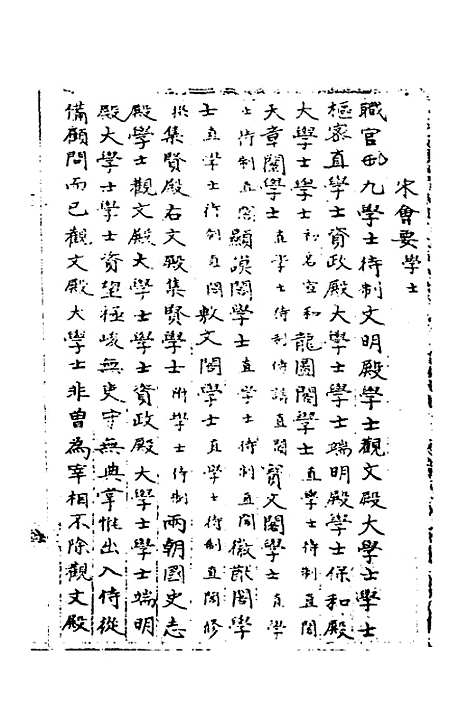 宋會要學士
職官部九學士待制文明殿學士觀文殿大學士學士
樞密直學士資政殿大學士學士端明殿學士保和殿
大學士學士初名宣和龍圖閣學士直學士待制直閣
天章閣學士直學士待制侍講直閣寳文閣學士直學
士待制直閣顯謨閣學士直學士待制直閣徽猷閣學
士直學士待制直閣敷文閣學士直學士待制直閣修
撰集賢殿右文殿集賢學士附學士待制兩朝國史志
殿學士觀文殿大學士學士資政殿大學士學士端明
殿大學士學士資望極峻無吏守無典掌惟出入侍從
備顧問而已觀文殿大學士非曾為宰相不除觀文殿